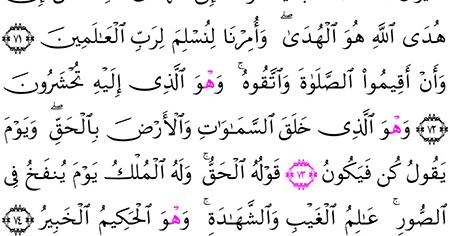 هُدَى اللَّهِ هُوَ الْهُدَىٰۖ وَأُمِرْنَا لِنُسْلِمَ لِرَبِّ الْعَـٰلَمِينَ ٧١
وَأَنْ أَقِيمُواْ الصَّلَوٰةَ وَاتَّقُوهُۚ وَهْوَ الَّذِى إِلَيْهِ تُحْشَرُونَ
٧٢ وَهْوَ الَّذِى خَلَقَ السَّمَـٰوَٰتِ وَالْأَرْضَ بِالْحَقِّۖ وَيَوْمَ
يَقُولُ كُن فَيَكُونُ ٧٣ قَوْلُهُ الْحَقُّۚ وَلَهُ الْمُلْكُ يَوْمَ يُنفَخُ فِى
الصُّورِۚ عَـٰلِمُ الْغَيْبِ وَالشَّهَـٰدَةِۚ وَهْوَ الْحَكِيمُ الْخَبِيرُ ٧٤